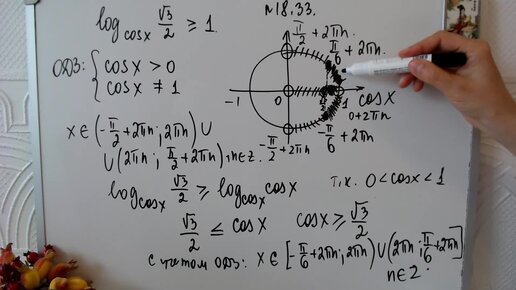 №18.33.
log_cosx √3/2 ≥ 1.
ОДЗ: { cosx > 0
cosx ≠ 1
x ∈ (-π/2 + 2πn; 2πn) ∪
∪ (2πn; π/2 + 2πn), n∈Z.
π/2 + 2πn
π/6 + 2πn
-1 0 √3/2 1 cosx
0+2πn
-π/6 + 2πn
-π/2 + 2πn
log_cosx √3/2 ≥ log_cosx cosx т.к. 0 < cosx < 1
√3/2 ≤ cosx cosx ≥ √3/2
с учетом ОДЗ: x ∈ [-π/6 + 2πn; 2πn) ∪ (2πn; π/6 + 2πn]
n∈Z.